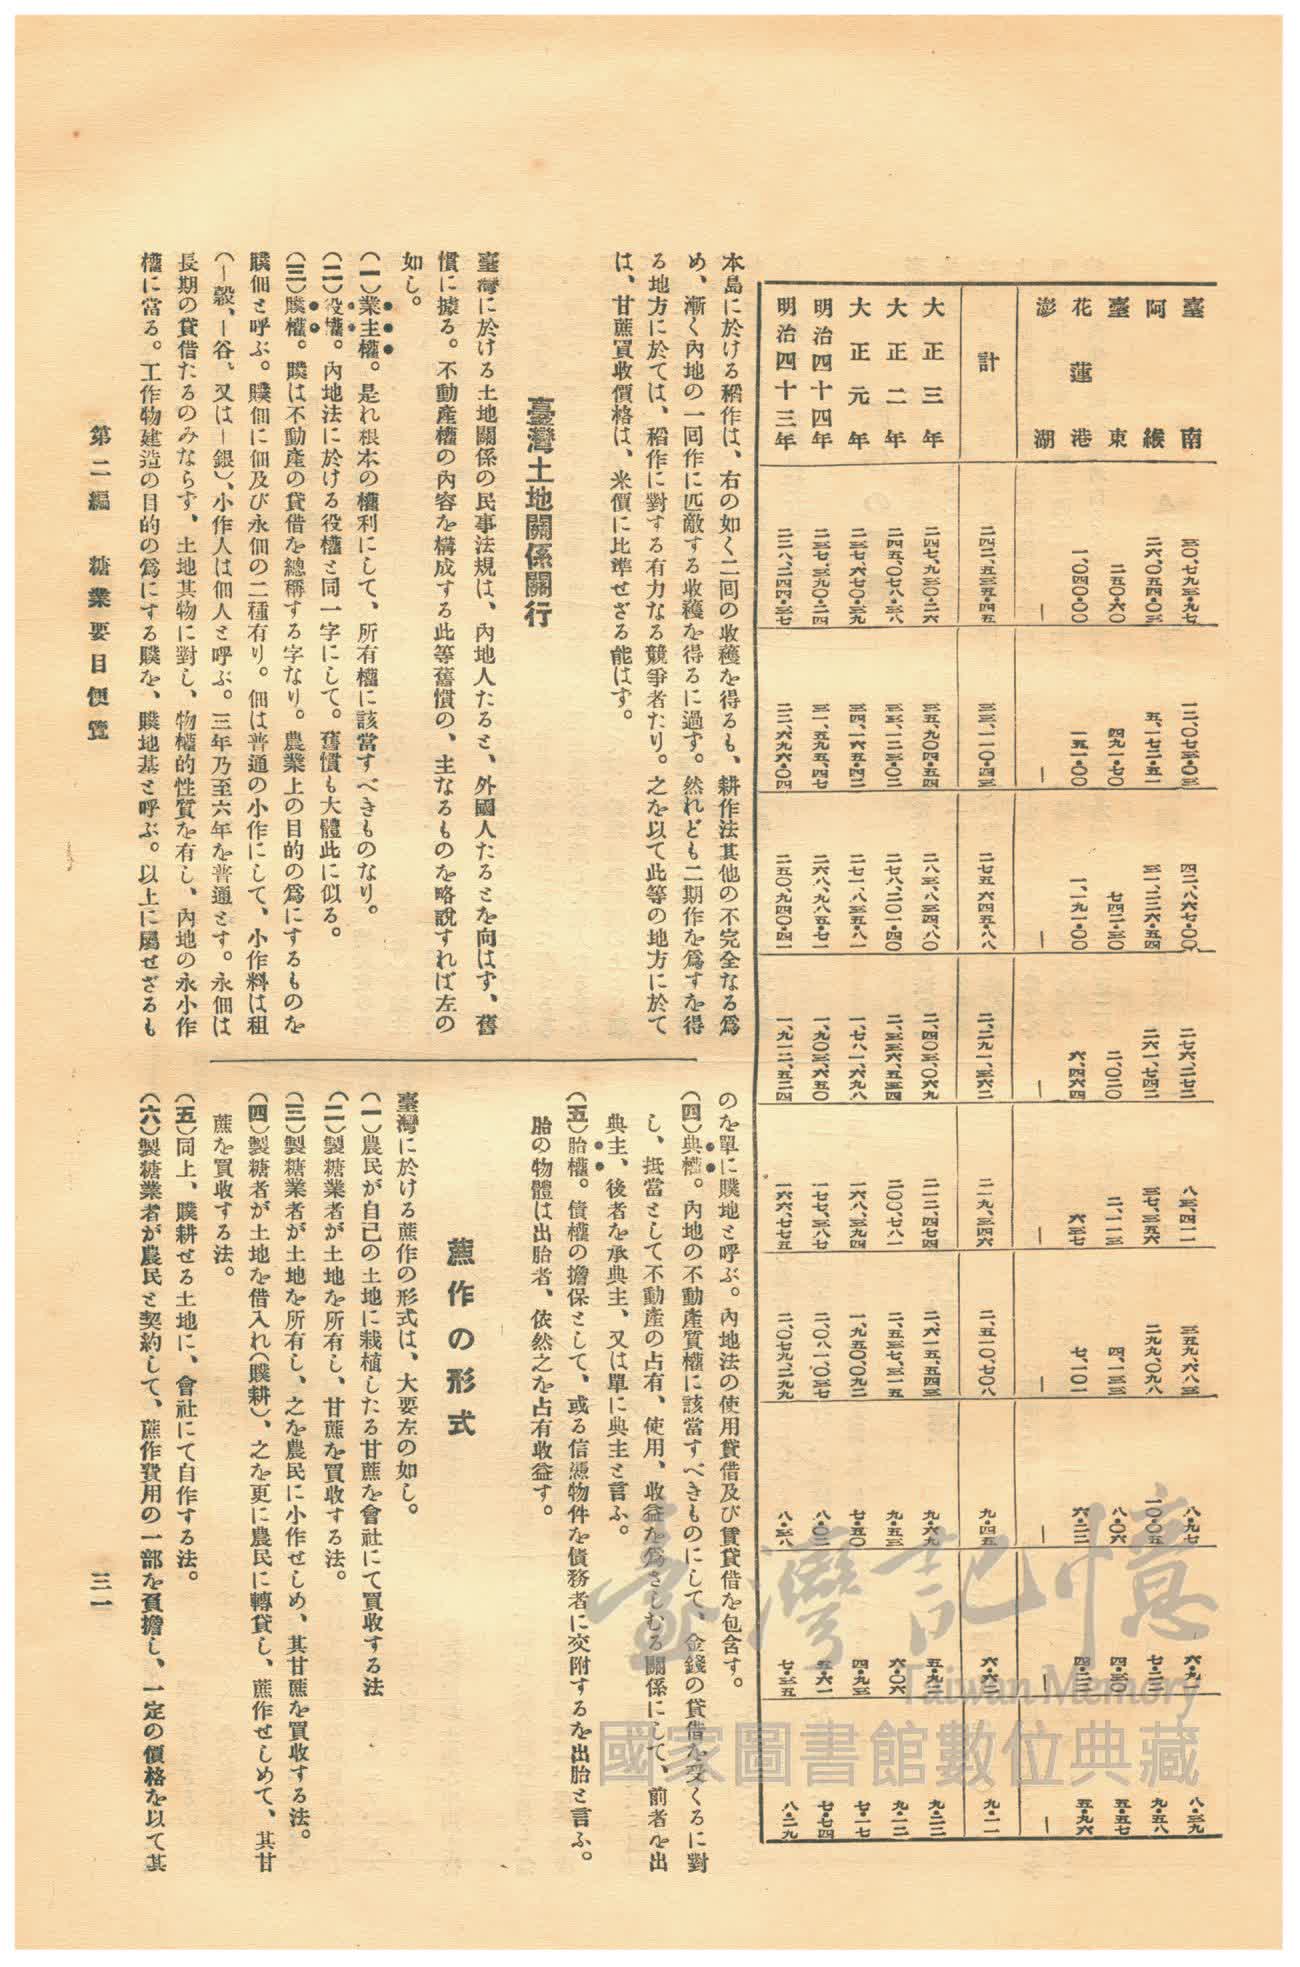 臺南 三〇、七九三・九七 一二、〇七三・〇三 四二、八六七・〇〇 二七六、二七二 八三、四一一 三五九、六八三 八・九七 六・九一 八・三九
阿緱 二六、〇五四・〇三 五、一七二・五一 三一、二二六・五四 二六一、七四二 三七、三五六 二九九、〇九八 一〇・〇五 七・二三 九・五八
臺東 二五〇・六〇 四九一・七〇 七四二・三〇 二、〇二〇 二、一一三 四、一三三 八・〇六 四・三〇 五・五七
花蓮港 一、〇四〇・〇〇 一五一・〇〇 一、一九一・〇〇 六、四六四 六三七 七、一〇一 六・二二 四・二二 五・九六
澎湖 ー ー ー ー ー ー ー ー ー
計 二四二、五三五・四五 三三、一一〇・四三 二七五、六四五・八八 二、二九一、三六二 二一九、三四六 二、五一〇、七〇八 九・四五 六・六二 九・一一
大正三年 二四七、九三〇・二六 三五、九〇四・五四 二八三、八三四・八〇 二、四〇三、〇六九 二一二、四七四 二、六一五、五四三 九・六九 五・九二 九・二二
大正二年 二四五、〇七八・三八 三三、一二三・〇二 二七八、二〇一・四〇 二、三三六、五三四 二〇〇、七八一 二、五三七、三一五 九・五三 六・〇六 九・一二
大正元年 二三七、六七〇・三九 三四、一六五・四二 二七一、八三五・八一 一、七八一、六九八 一六八、三九四 一、九五〇、〇九二 七・五〇 四・九三 七・一七
明治四十四年 二三七、三九〇・二四 三一、五九五・四七 二六八、九八五・七一 一、九〇三、六五〇 一七七、三八七 二、〇八一、〇三七 八・〇二 五・六一 七・七四
明治四十三年 二二八、二四四・三七 二二、六九六・〇四 二五〇、九四〇・四一 一、九一二、五二四 一六六、七七五 二、〇七九、二九九 八・三八 七・三五 八・二九
本島に於ける稻作は、右の如く二回の收穫を得るも、耕作法其他の不完全なる爲
め、漸く內地の一回作に匹敵する收穫を得るに過す。然れども二期作を爲すを得
る地方に於ては、稻作に對する有力なる競爭者たり。之を以て此等の地方に於て
は、甘蔗買收價格は、米價に比準せざる能はず。
臺灣土地關係關行
臺灣に於ける土地關係の民事法規は、內地人たると、外國人たるとを向はず、舊
慣に據る。不動產權の內容を構成する此等舊慣の、主なるものを略說すれば左の
如し。
(一)業主權。是れ根本の權利にして、所有權に該當すべきものなり。
(二)役權。內地法に於ける役權と同一字にして。舊慣も大體此に似る。
(三)贌權。贌は不動產の貸借を總稱する字なり。農業上の目的の爲にするものを
贌佃と呼ぶ。贌佃に佃及び永佃の二種有り。佃は普通の小作にして、小作料は租
(ー穀、ー谷、又はー銀)、小作人は佃人と呼ぶ。三年乃至六年を普通とす。永佃は
長期の貸借たるのみならす、土地其物に對し、物權的性質を有し、內地の永小作
權に當る。工作物建造の目的の爲にする贌を、贌地基と呼ぶ。以上に屬せざるも
のを單に贌地と呼ぶ。內地法の使用貸借及び賃貸借を包含す。
(四)典權。內地の不動產質權に該當すべきものにして、金錢の貸借を受くるに對
し、抵當として不動產の占有、使用、收益を爲さしむる關係にして、前者を出
典主、後者を承典主、又は單に典主と言ふ。
(五)胎權。債權の擔保として、或る信憑物件を債務者に交附するを出胎と言ふ。
胎の物體は出胎者、依然之を占有收益す。
蔗作の形式
臺灣に於ける蔗作の形式は、大要左の如し。
(一)農民が自己の土地に栽植したる甘蔗を會社にて買收する法
(二)製糖業者が土地を所有し、甘蔗を買收する法。
(三)製糖業者が土地を所有し、之を農民に小作せしめ、其甘蔗を買收する法。
(四)製糖者が土地を借入れ(贌耕)、之を更に農民に轉貸し、蔗作せしめて、其甘
蔗を買收する法。
(五)同上、贌耕せる土地に、會社にて自作する法。
(六)製糖業者が農民と契約して、蔗作費用の一部を負擔し、一定の價格を以て其
第二編 糖業要目便覽
三一
臺灣記憶
Taiwan Memory
國家圖書館數位典藏